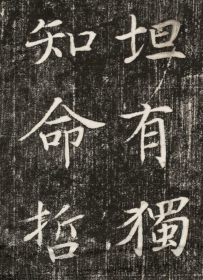 坦有獨
知命哲